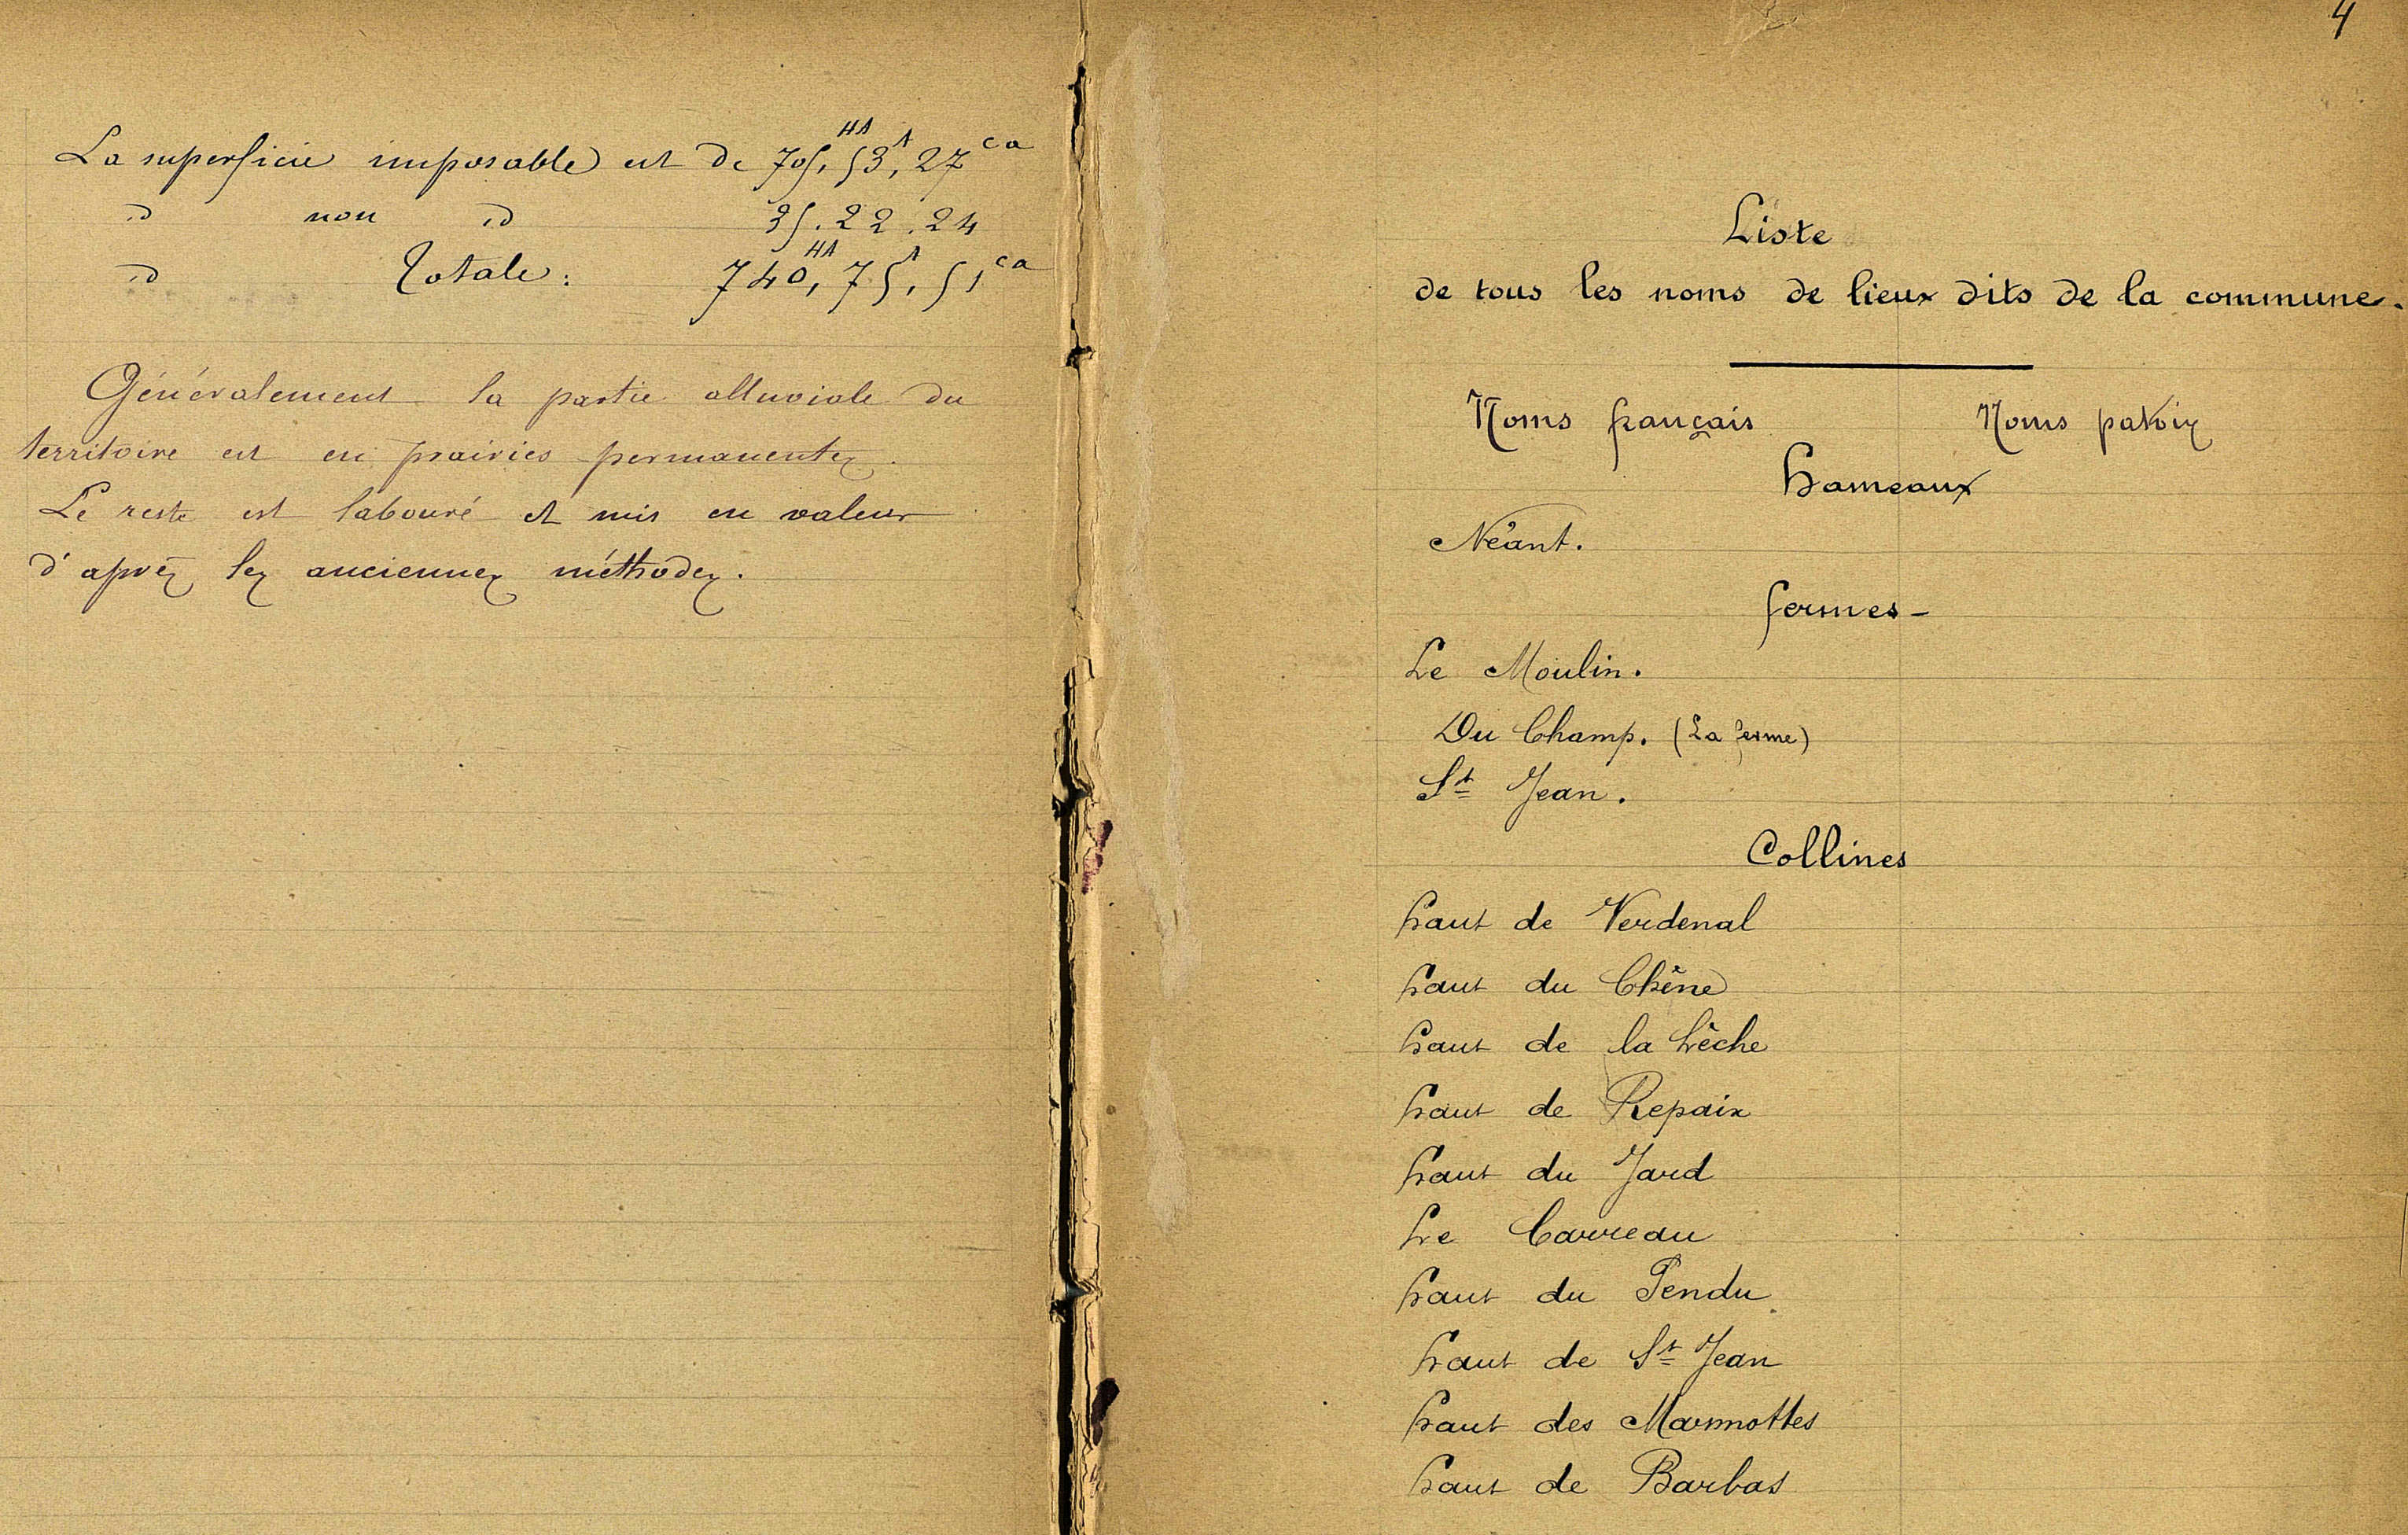 La superficie imposable est de 705,HA 53,A 27ca
id non id 35.22.24
id Totale : 740,HA 75,A 51ca
Généralement la partie alluviale du
territoire est en prairies permanentes.
Le reste est labouré et mis en valeur
d'après les anciennes méthodes.
4
Liste
de tous les noms de lieux dits de la commune.
Noms français Noms patois
Hameaux
Néant.
Fermes -
Le Moulin.
Du Champ. (La ferme)
St Jean.
Collines
Haut de Verdenal
Haut du Chêne
Haut de la Lèche
Haut de Repaix
Haut du Jard
Le Carreau
Haut du Pendu
Haut de St Jean
Haut des Marmottes
Haut de Barbas